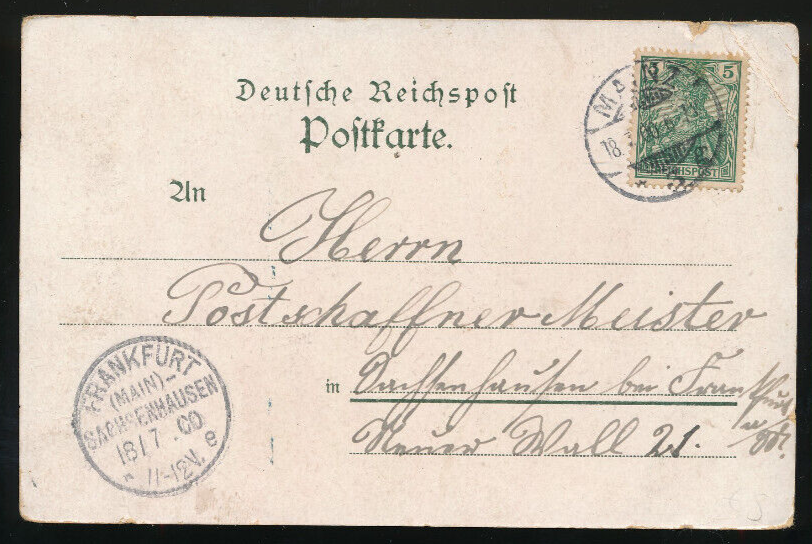 Deutsche Reichspost
Postkarte.
MAINZ
18.
5
REICHSPOST
An
Herrn
Postschaffner Meister
in Sachsenhausen bei Frankfurt
a/M.
Neuer Wall 21.
FRANKFURT
(MAIN)-
SACHSENHAUSEN
18 7 .00
* 11-12V. e